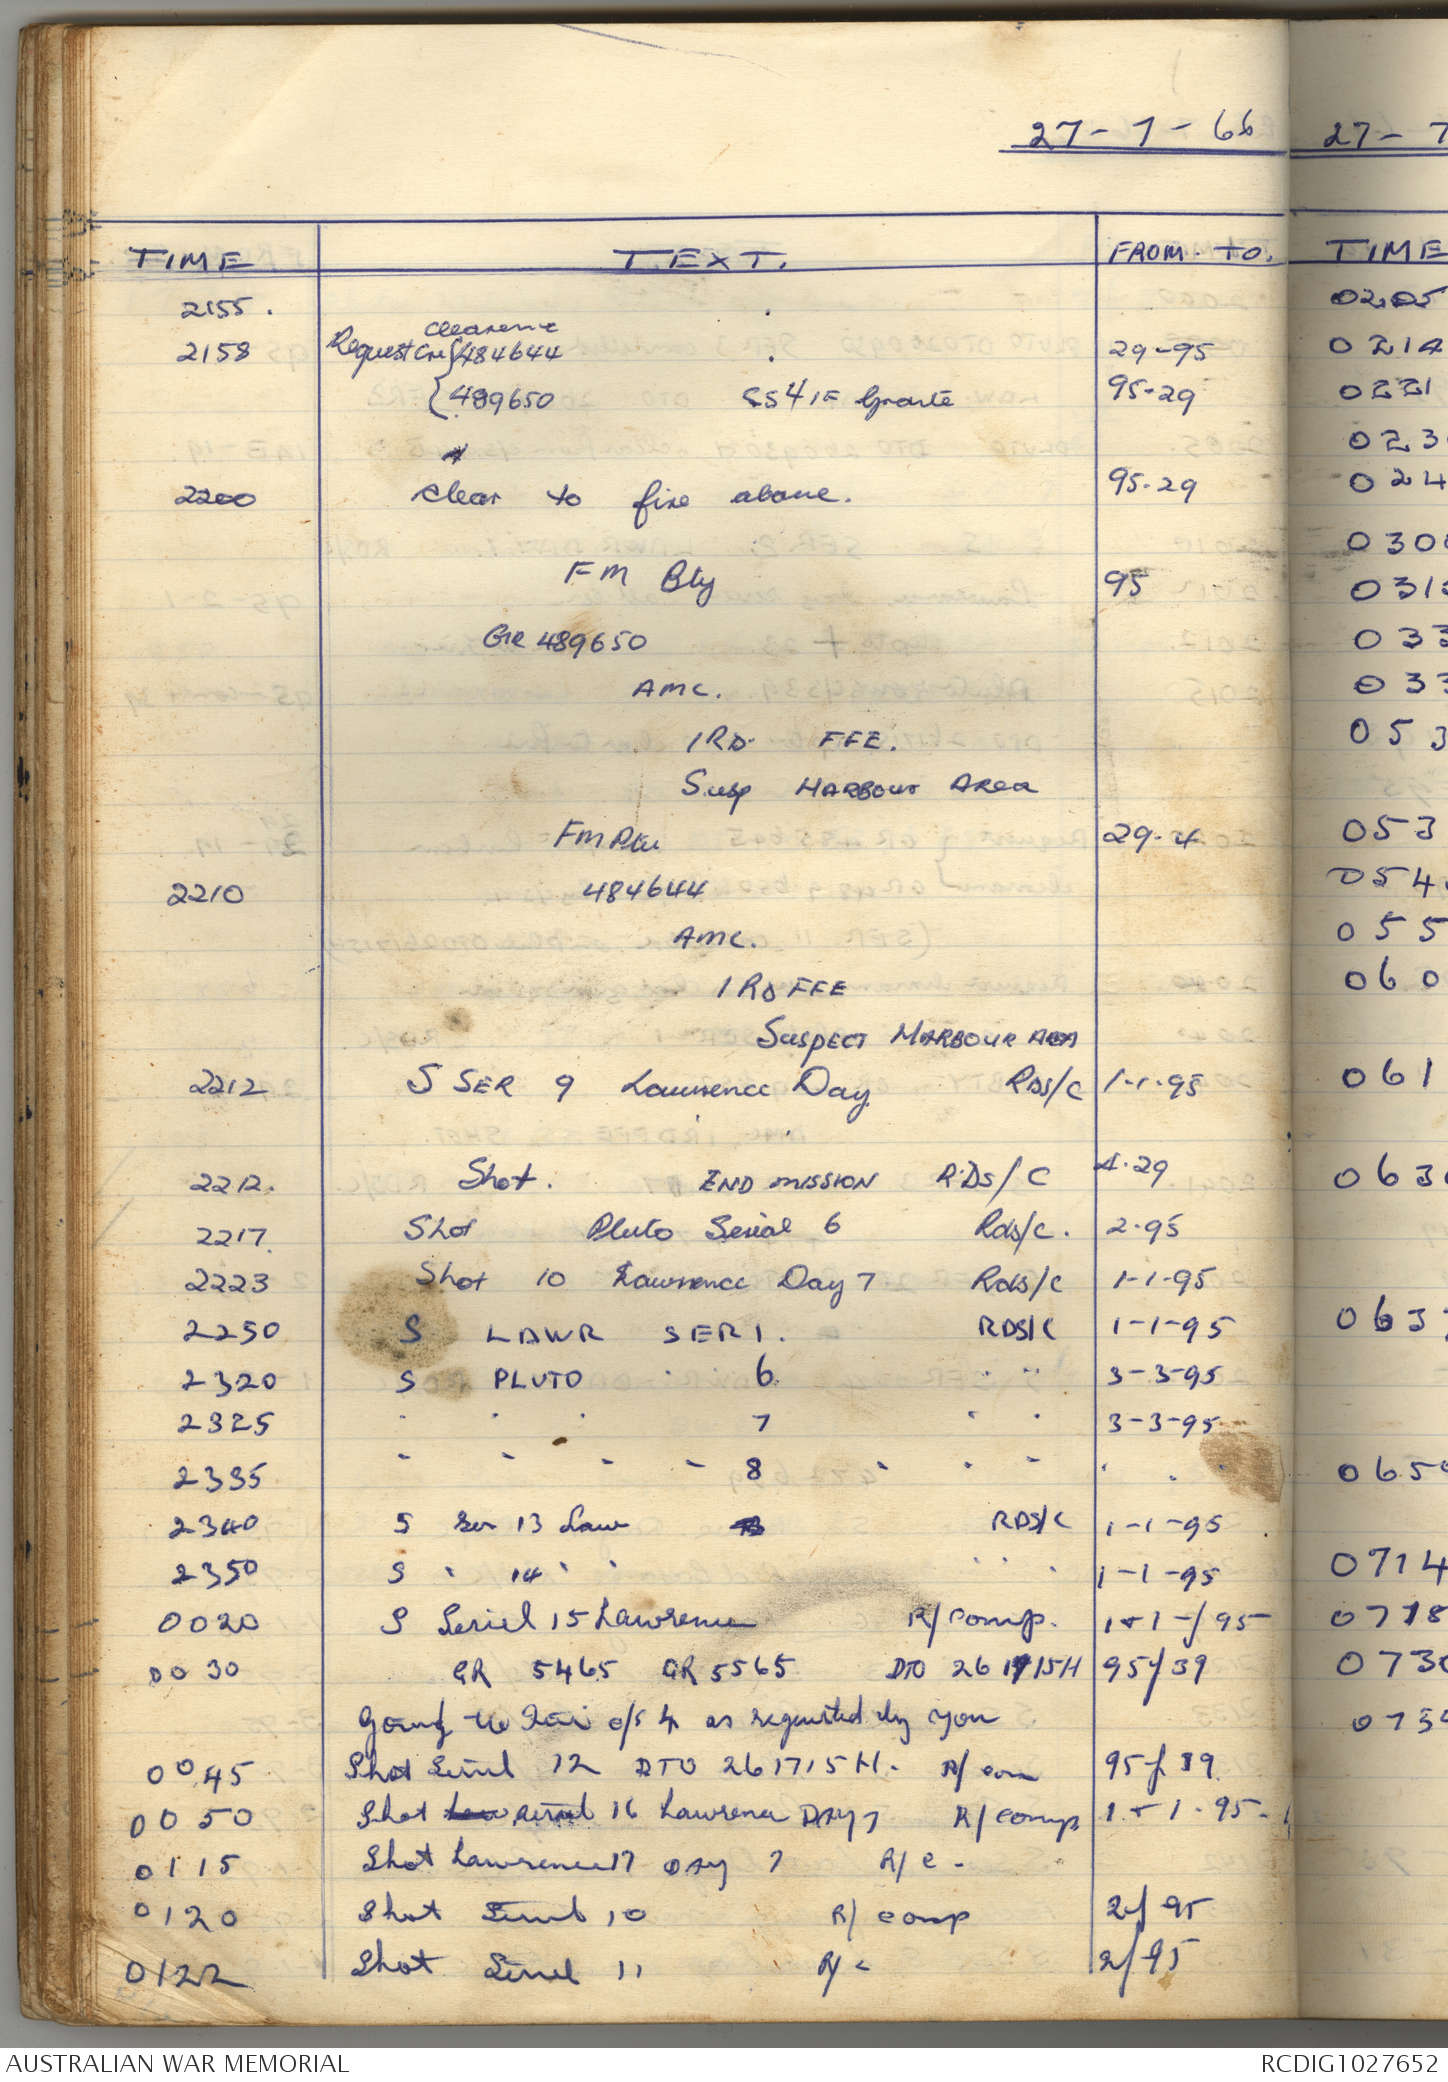 27-7-66
TIME TEXT. FROM. TO.
2155.
clearence
2158 Request GR 484644 29-95
489650 SS 4 IF Granite 95-29
2200 clear to fire above. 95-29
FM Bty 95
GR 489650
AMC.
1RD. FFE.
Susp HARBOUR AREA
FM 29-4
2210 484644
AMC.
1 RD FFE
SUSPECT HARBOUR AREA
2212 S SER 9 Lawrence Day RDS/C 1-1-95
2212. Shot. END MISSION RDS/C 4-29
2217. Shot Pluto Serial 6 Rds/c. 2-95
2223 Shot 10 Lawrence Day 7 Rds/c 1-1-95
2250 S LAWR SER 1. RDS/C 1-1-95
2320 S PLUTO " 6 " " 3-3-95
2325 " " " 7 " " 3-3-95
2335 " " " " 8 " " " " " "
2340 S Ser 13 Law RDS/C 1-1-95
2350 S " 14 " " " " " 1-1-95
0020 S Seriel 15 Lawrence R/comp. 1+1-/95-
0030 GR 5465 GR 5565 DTO 261715H 95/39
as requested by you
0045 Shot Seriel 12 DTO 261715H. R/com 95/39
0050 Shot seriel 16 Lawrence DAY 7 R/comp 1+1-95-
0115 Shot Lawrence 17 DAY 7 R/C -
0120 Shot Seriel 10 R/comp 2/95
0122 Shot Seriel 11 R/c 2/95
27-7
TIME
0205
0214
0221
023
024
030
031
033
033
053
053
054
055
060
061
063
063
065
0714
0718
0730
073
AUSTRALIAN WAR MEMORIAL RCDIG1027652